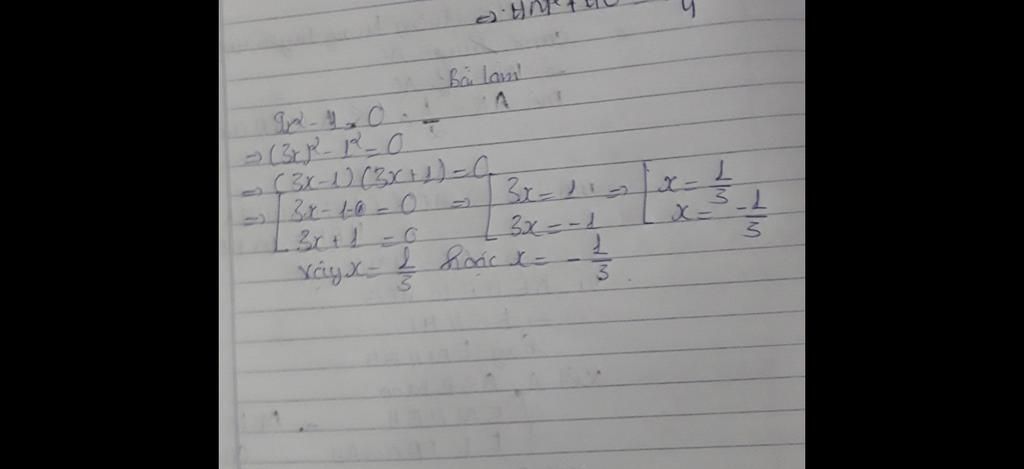 Bài làm
9x² - 1 = 0
⇒ (3x)² - 1² = 0
⇒ (3x-1)(3x+1) = 0
⇒ [ 3x - 1 = 0 ⇒ [ 3x = 1 ⇒ [ x = 1/3
3x + 1 = 0 3x = -1 x = -1/3
Vậy x = 1/3 hoặc x = -1/3